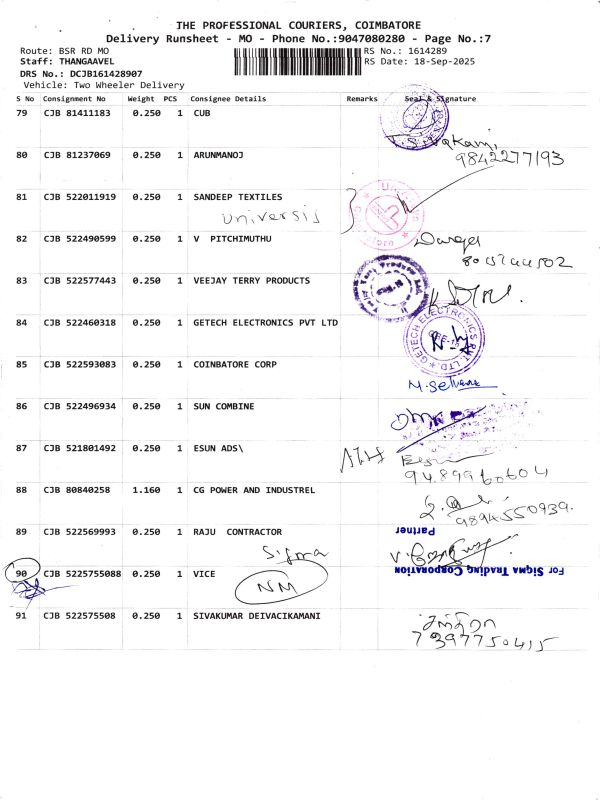 THE PROFESSIONAL COURIERS, COIMBATORE
Delivery Runsheet - MO - Phone No.:9047080280 - Page No.:7
Route: BSR RD MO RS No.: 1614289
Staff: THANGAAVEL RS Date: 18-Sep-2025
DRS No.: DCJB161428907
Vehicle: Two Wheeler Delivery
S No Consignment No Weight PCS Consignee Details Remarks Seal & Signature
79 CJB 81411183 0.250 1 CUB
80 CJB 81237069 0.250 1 ARUNMANOJ
9842277193
81 CJB 522011919 0.250 1 SANDEEP TEXTILES
82 CJB 522490599 0.250 1 V PITCHIMUTHU
83 CJB 522577443 0.250 1 VEEJAY TERRY PRODUCTS
84 CJB 522460318 0.250 1 GETECH ELECTRONICS PVT LTD
GETECH ELECTRONICS PVT. LTD.
85 CJB 522593083 0.250 1 COINBATORE CORP
86 CJB 522496934 0.250 1 SUN COMBINE
87 CJB 521801492 0.250 1 ESUN ADS\
9489960604
88 CJB 80840258 1.160 1 CG POWER AND INDUSTREL
9894550939.
Partner
89 CJB 522569993 0.250 1 RAJU CONTRACTOR
Sigma
For SIGMA TRADING CORPORATION
90 CJB 5225755088 0.250 1 VICE
NM
91 CJB 522575508 0.250 1 SIVAKUMAR DEIVACIKAMANI
7397750415